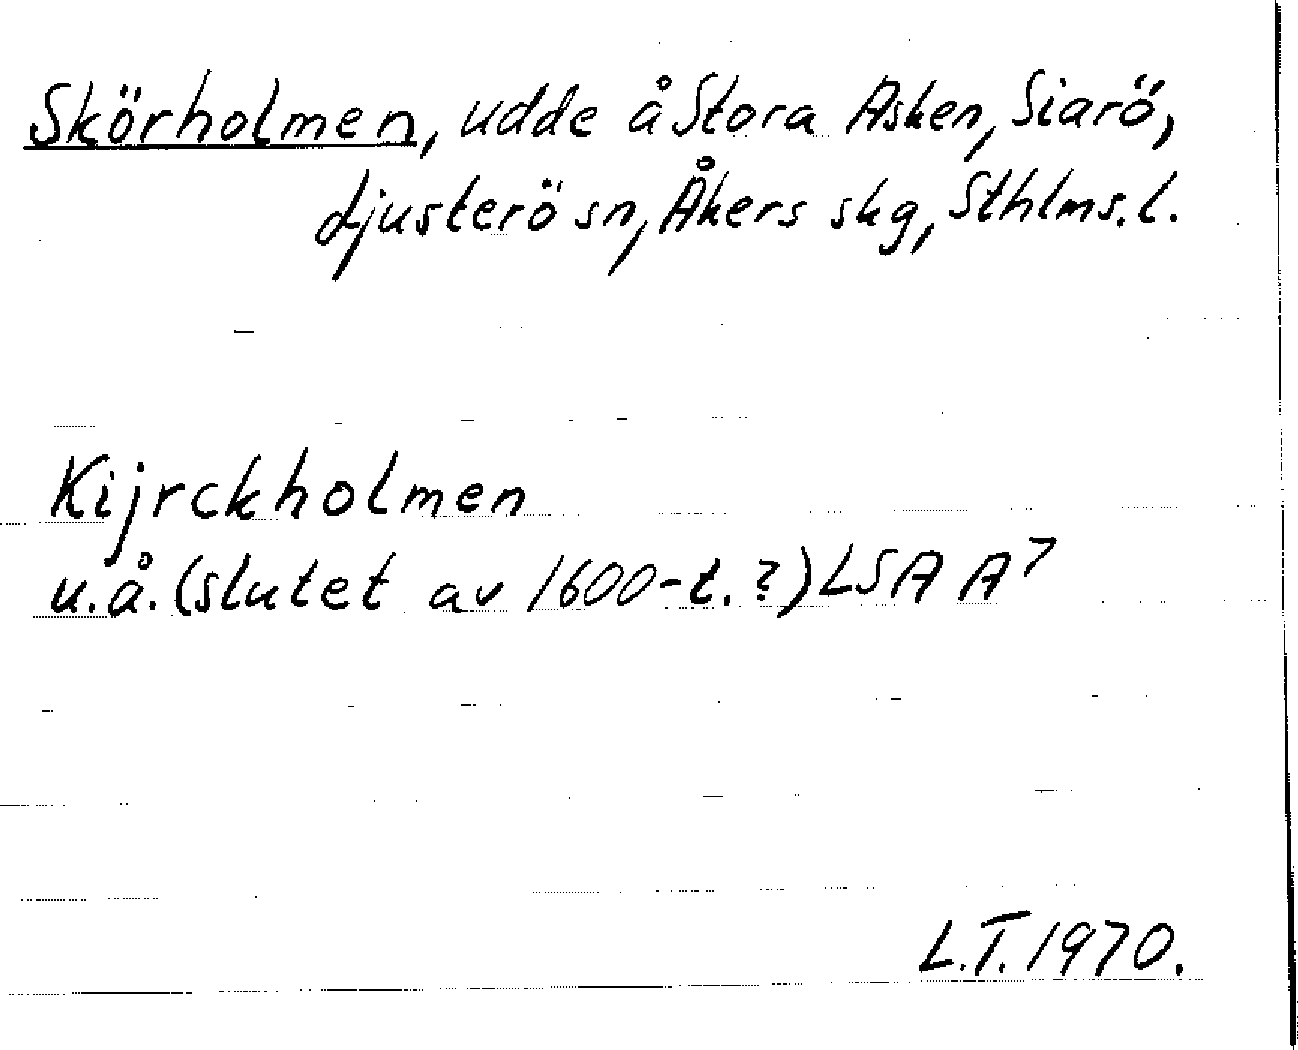 Skörholmen, udde å Stora Asken, Siarö,
Ljusterö sn, Åkers skg, Sthlms. l.
Kijrckholmen
u.å. (slutet av 1600-t.?) LSA A7
L.T. 1970.